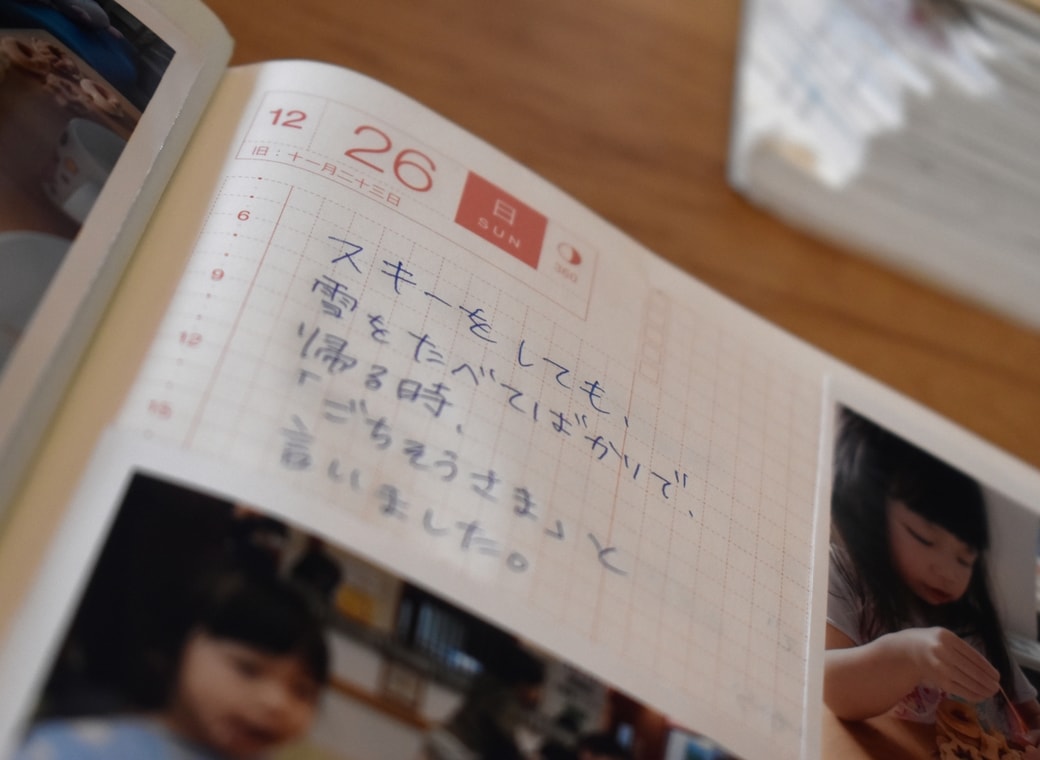 12
26
日
SUN
360
旧：十一月二十三日
6
9
12
スキーをしても、
雪をたべてばかりで、
帰る時、
「ごちそうさま」と
言いました。